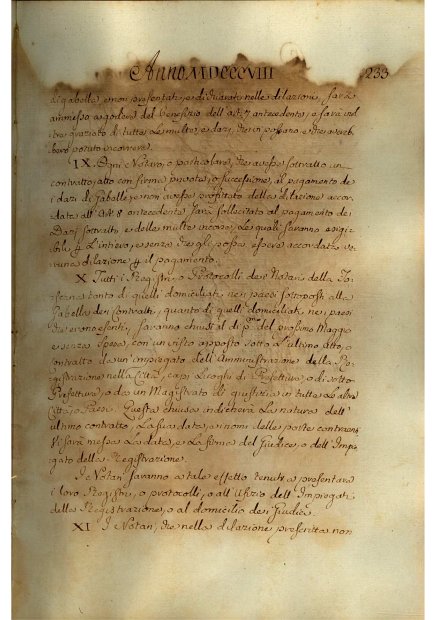 Anno MDCCCVIII 233
di gabella, e non presentati, e dichiarati nelle dilazioni, sarà
ammesso a godere del benefizio dell'art. 7 antecedente, e sarà inol
tre graziato di tutte le multe, e dazi, che in passato e che avreb
bero potuto incorrere.
IX. Ogni Notaro, o particolare, che avesse sottratto un
contratto, atto con firma privata, o successione, al pagamento de
i dazi di Gabella, e non avesse profittato della dilazione accor
data all'Art. 8 antecedente sarà sollecitato al pagamento dei
Dazi sottratti e delle multe incorse, le quali saranno esigi
bili p. l'intiero, e senza che gli possa essere accordata ve
runa dilazione p. il pagamento.
X. Tutti i Registri, o Protocolli dei Notari della To
scana tanto di quelli domiciliati nei paesi sottoposti alla
Gabella dei Contratti, quanto di quelli domiciliati nei paesi
che erono esenti, saranno chiusi al dì p.mo del prossimo Maggio
e senza spesa, con un visto apposto sotto l'ultimo atto, o
contratto da un impiegato dell'Amministrazione della Re
gistrazione nella Città, capi Luoghi di Prefettura, o di sotto
Prefettura, o da un Magistrato di giustizia in tutte le altre
Città, o Paesi. Questa chiusa indicherà la natura dell'
ultimo contratto, la sua data, e i nomi delle parti contraen
ti, sarà messa la data, e la firma del Giudice, o dell'Impie
gato della Registrazione.
I Notari saranno a tale effetto tenuti a presentare
i loro Registri, o protocolli, o all'Ufizio dell'Impiegati
della Registrazione, o al domicilio dei Giudici.
XI. I Notari, che nella dilazione prescritta non